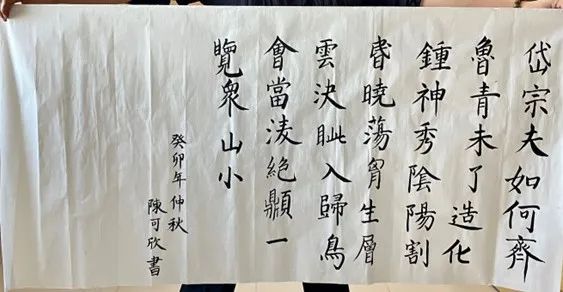 岱宗夫如何齊
魯青未了造化
鍾神秀陰陽割
昬曉蕩胷生層
雲決眦入歸鳥
會當淩絶一
覽衆山小
癸卯年仲秋
陳可欣書